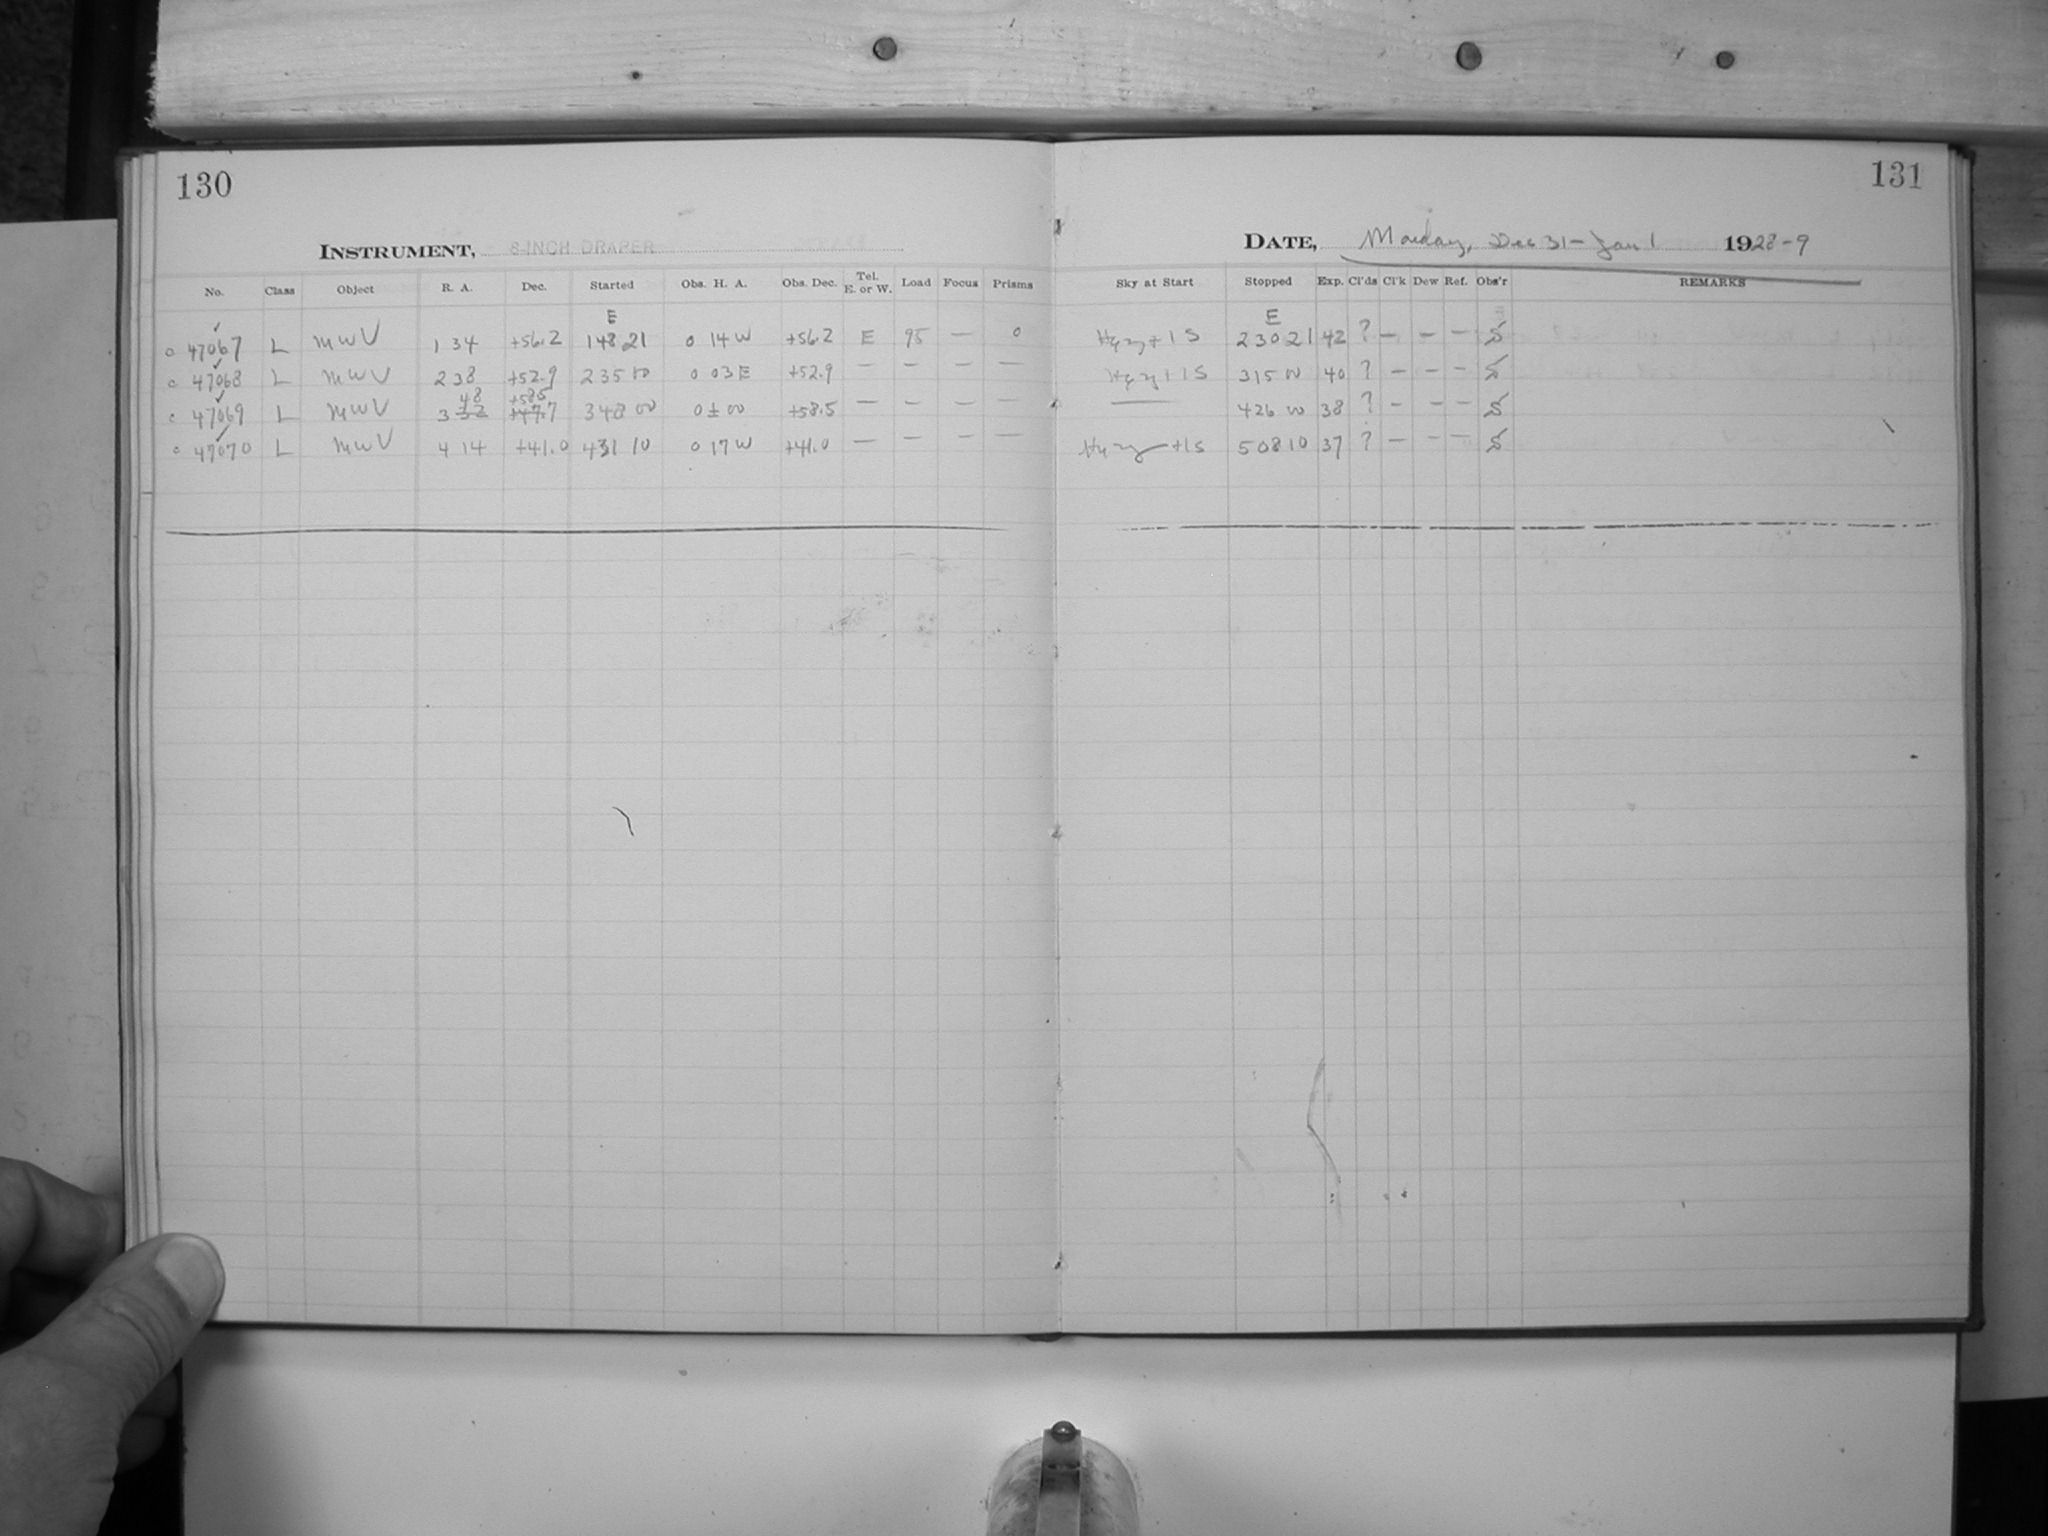 130
131
INSTRUMENT, 8-INCH DRAPER
DATE, Monday, Dec 31 - Jan 1 1928-9
No. Class Object R. A. Dec. Started Obs. H. A. Obs. Dec. Tel. E. or W. Load Focus Prisms Sky at Start Stopped Exp. Cl'ds Cl'k Dew Ref. Obs'r REMARKS
E E
c 47067 L MWV 1 34 +56.2 1 48 21 0 14 W +56.2 E 95 — 0 Hazy + 1 S 2 30 21 42 ? — — —
c 47068 L MWV 2 38 +52.9 2 35 10 0 03 E +52.9 — — — — Hazy + 1 S 3 15 00 40 ? — — —
48 +58.5
c 47069 L MWV 3 32 +47.7 3 48 00 0 ± 00 +58.5 — — — — —— 4 26 00 38 ? — — —
c 47070 L MWV 4 14 +41.0 4 31 10 0 17 W +41.0 — — — — Hazy +1S 5 08 10 37 ? — — —